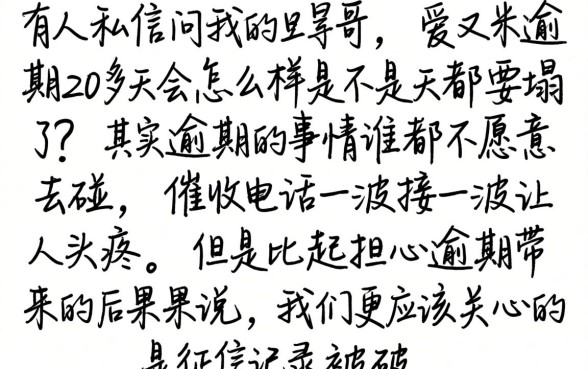 有人私信问我的旦昊哥，爱又米逾
期20多天会怎么样是不是天都要塌
了？其实逾期的事情谁都不愿意
去碰，催收电话一波接一波让
人头疼。但是比起担心逾期带
来的后果果说，我们更应该关心的
是征信记录被破